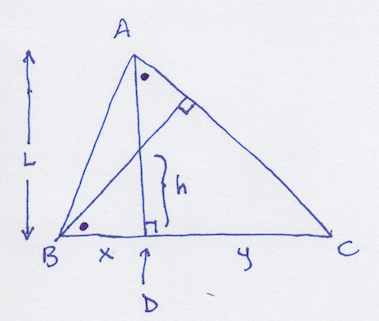 A
L
h
B
x
y
C
D